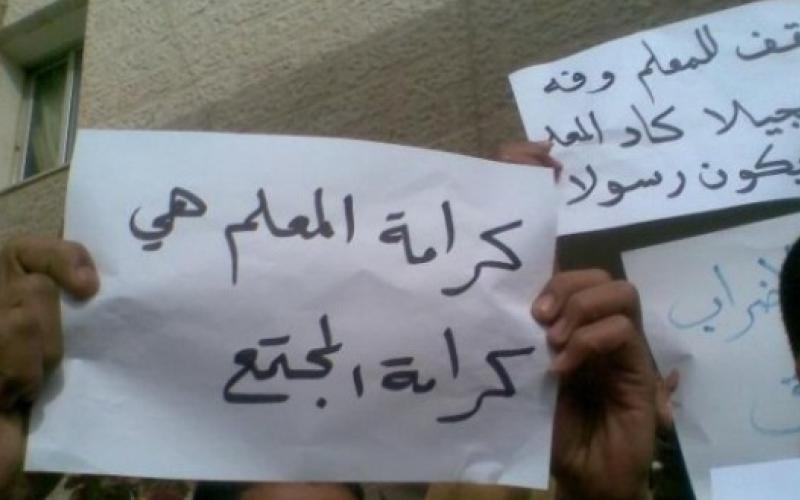 كرامة المعلم هي
كرامة المجتمع
قف للمعلم وفه
جيلا كاد المعل
يكون رسولا
ضراب